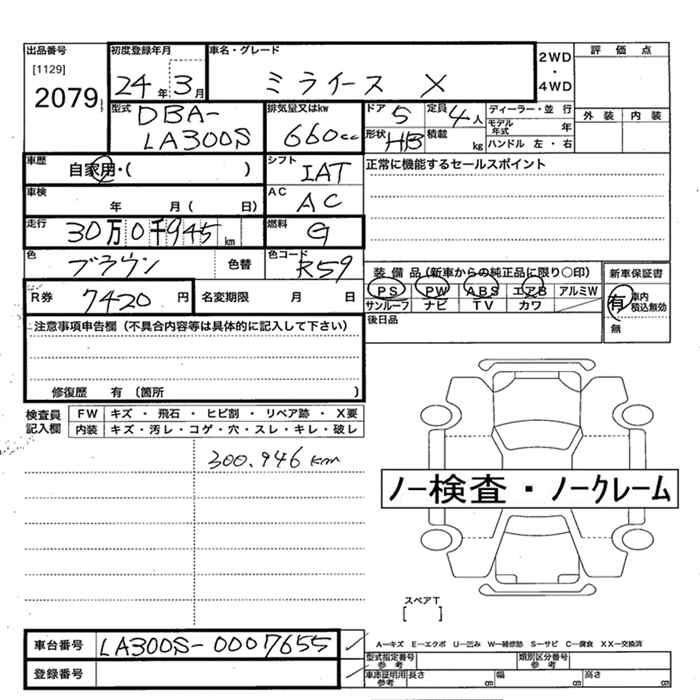 出品番号
[1129]
2079
初度登録年月
24年3月
車名・グレード
ミライース X
2WD
・
4WD
評価点
外装 内装
型式
DBA-
LA300S
排気量又はkw
660cc
ドア 5
定員 4人
形状 HB
積載 kg
ディーラー・並行
モデル年式 年
ハンドル 左・右
車歴
自家用・( )
シフト
IAT
正常に機能するセールスポイント
車検
年 月( 日)
AC
AC
走行
30万0千945km
燃料
G
色
ブラウン 色替
色コード
R59
装備品(新車からの純正品に限り○印)
PS PW ABS エアB アルミW
サンルーフ ナビ TV カワ
新車保証書
有 車内積込無効
無
R券 7420円
名変期限 月 日
後日品
注意事項申告欄(不具合内容等は具体的に記入して下さい)
修復歴 有(箇所 )
検査員記入欄
FW キズ・飛石・ヒビ割・リペア跡・X要
内装 キズ・汚レ・コゲ・穴・スレ・キレ・破レ
300.946km
ノー検査・ノークレーム
スペアT
[ ]
車台番号 LA300S-0007655
登録番号
A―キズ E―エクボ U―凹み W―補修跡 S―サビ C―腐食 XX―交換済
型式指定番号 参考
類別区分番号 参考
車庫証明用 参考 長さ cm 幅 cm 高さ cm